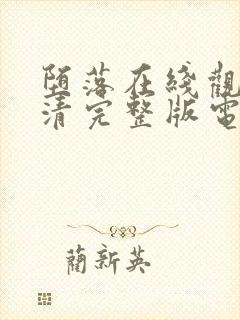 堕落在綫觀
清完整版電
蔺新英